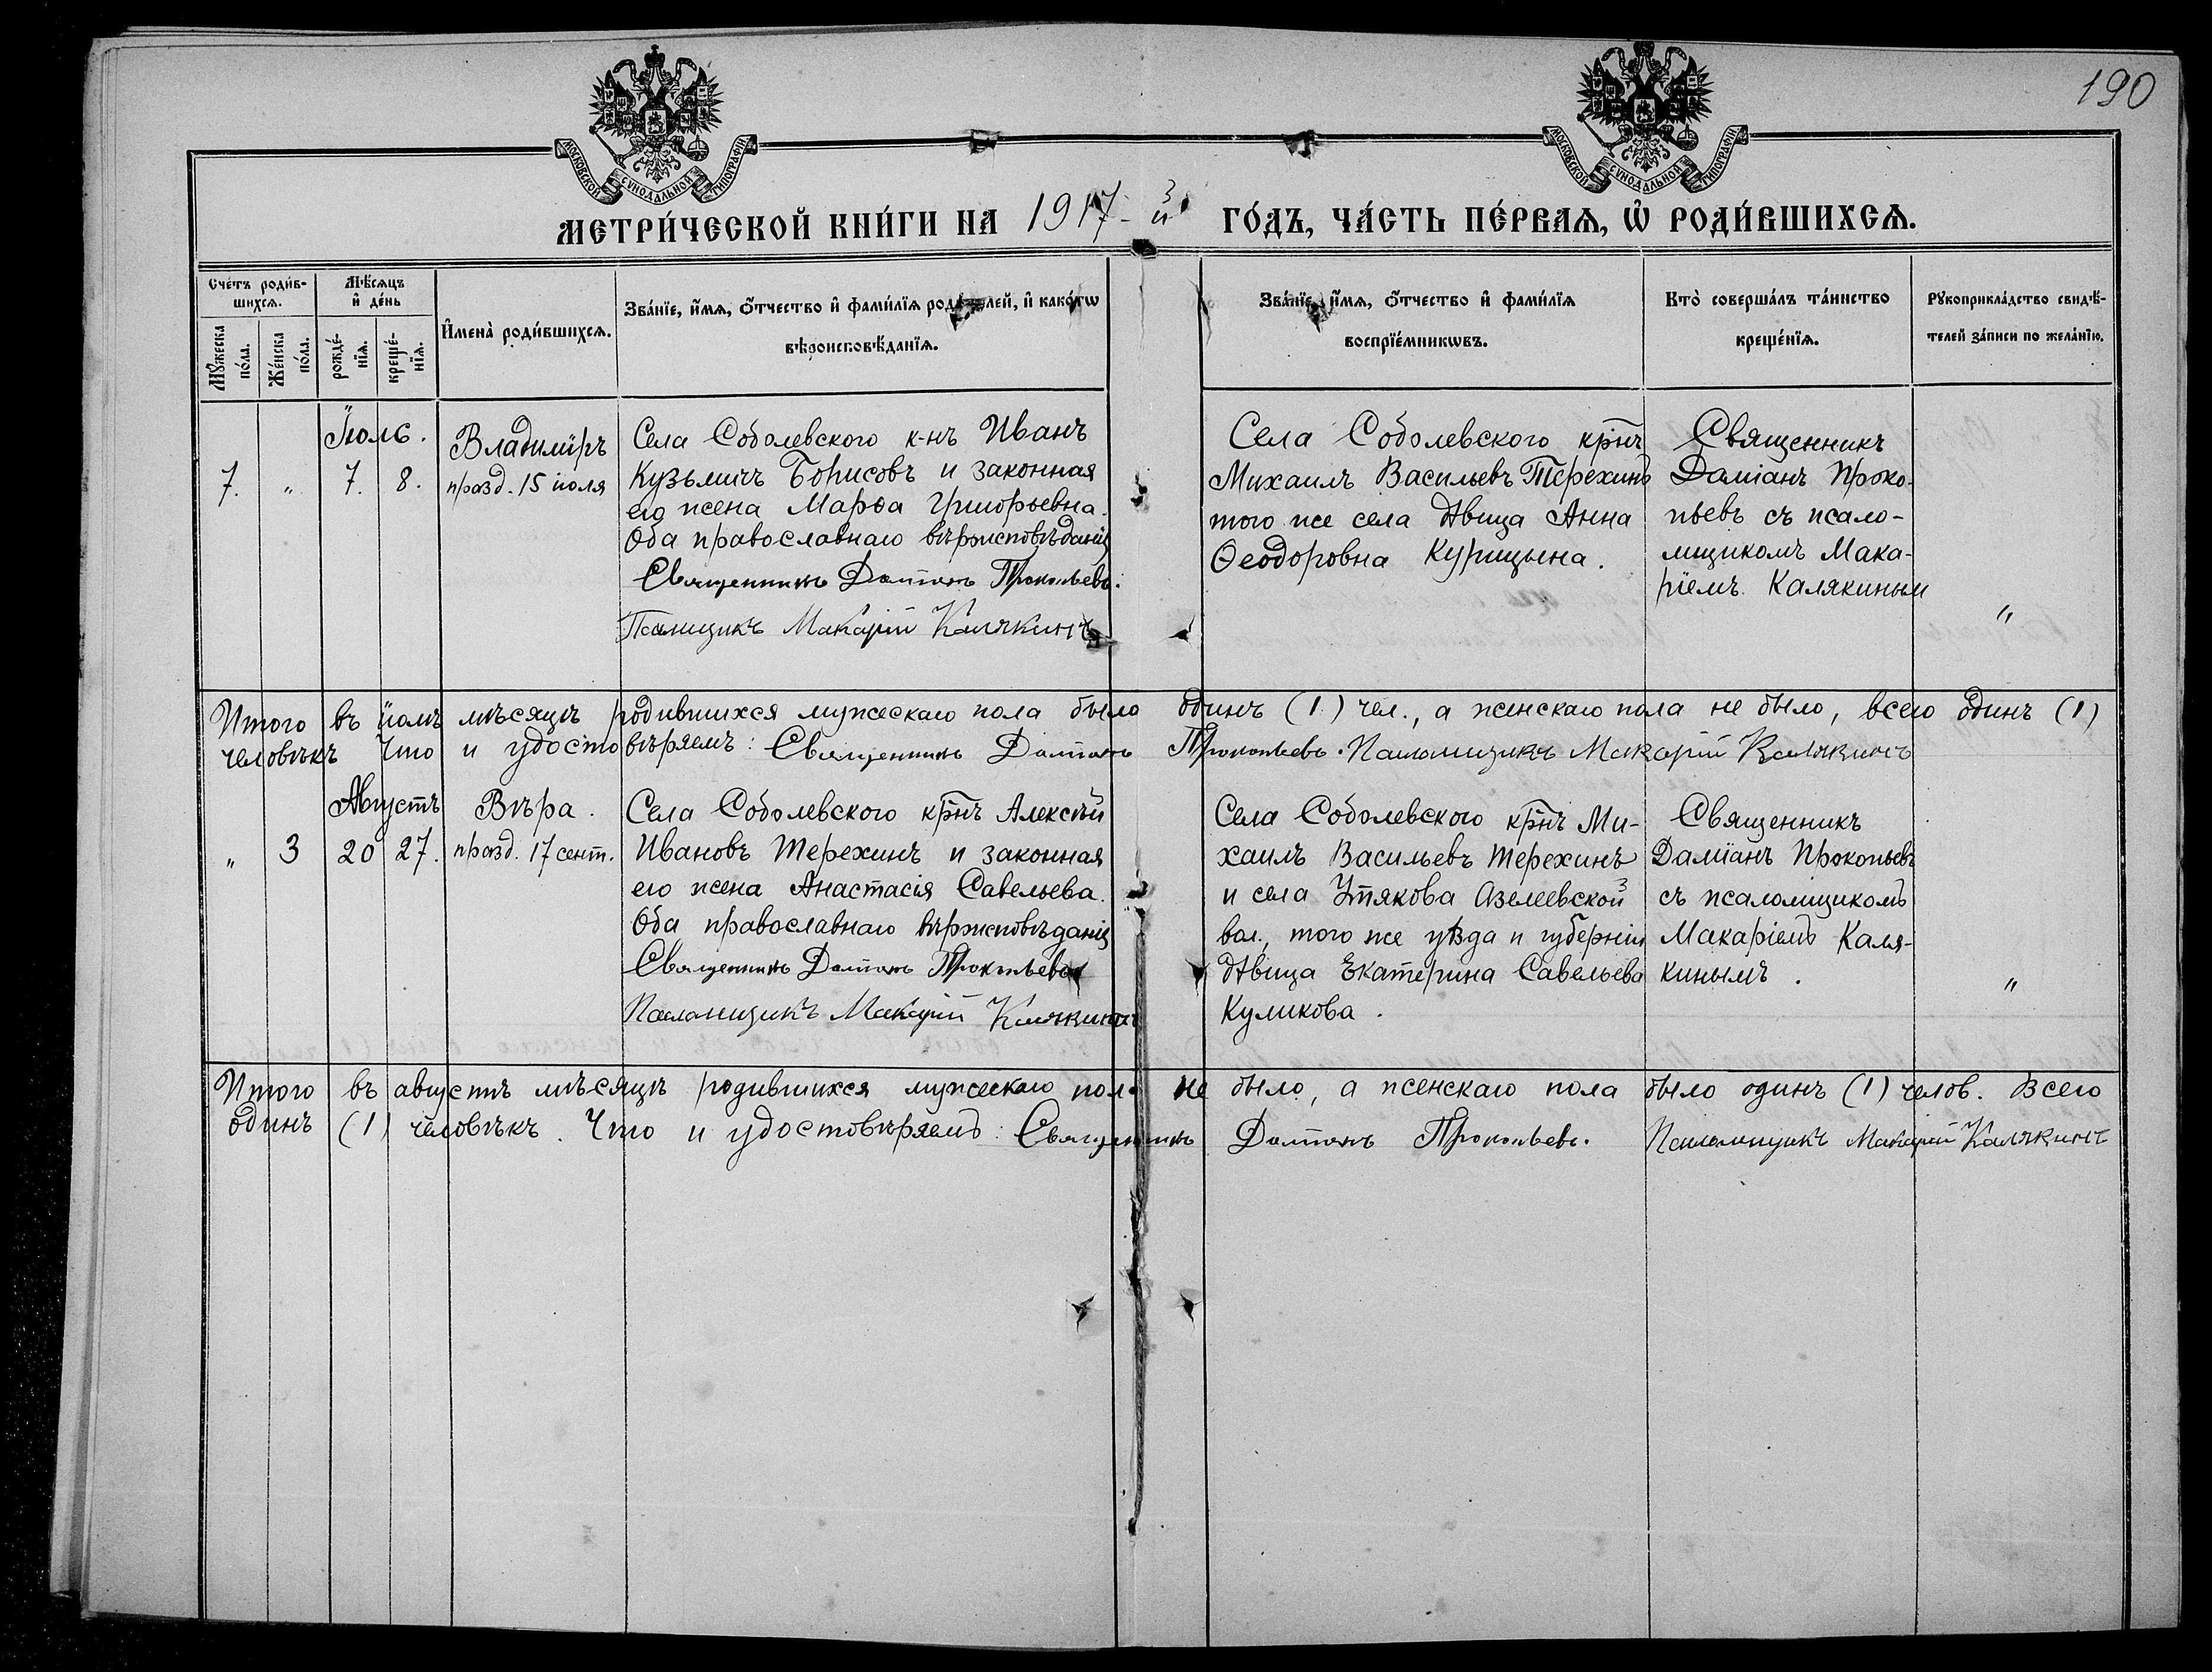 190
МОСКОВСКОЙ СѴНОДАЛЬНОЙ ТИПОГРАФІИ
МОСКОВСКОЙ СѴНОДАЛЬНОЙ ТИПОГРАФІИ
МЕТРИ́ЧЕСКОЙ КНИ́ГИ НА 1917-й ГО́ДЪ, ЧА́СТЬ ПЕ́РВАѦ, Ѡ РОДИ́ВШИХСѦ.
Счетъ роди́в-
шихсѧ.
Мꙋжеска по́ла.
Же́нска по́ла.
Мѣ́сѧцъ
и де́нь
рожде́-
нїѧ.
креще́-
нїѧ.
Имена̀ роди́вшихсѧ.
Зва́нїе, и́мѧ, ѻ҆́тчество и҆ фами́лїѧ родителей, и҆ како́гѡ
вѣроисповѣ́данїѧ.
Зва́нїе, и́мѧ, ѻ҆́тчество и҆ фами́лїѧ
воспрїе́мникѡвъ.
Кто̀ соверша́лъ та́инство
креще́нїѧ.
Рꙋкоприкла́дство свидѣ́-
телей за́писи по жела́нїю.
Іюль.
7. „ 7. 8.
Владиміръ
празд. 15 іюля
Села Соболевского к-нъ Иванъ
Кузьмичъ Борисовъ и законная
его жена Марѳа Григорьевна.
Оба православнаго вѣроисповѣданія
Священникъ Даміанъ Прокопьевъ.
Псаломщикъ Макарій Калякинъ
Села Соболевского кр҃нъ
Михаилъ Васильевъ Терехинъ
того же села дѣвица Анна
Ѳеодоровна Курицына.
Священникъ
Даміанъ Проко-
пьевъ съ псало-
мщикомъ Мака-
ріемъ Калякиным
„
Итого въ іюлѣ мѣсяцѣ родившихся мужескаго пола было одинъ (1) чел., а женскаго пола не было, всего одинъ (1)
человѣкъ Что и удостовѣряемъ: Священникъ Даміанъ Прокопьевъ. Псаломщикъ Макарій Калякинъ
Августъ
„ 3 20 27.
Вѣра.
празд. 17 сент.
Села Соболевского кр҃нъ Алексѣй
Ивановъ Терехинъ и законная
его жена Анастасія Савельева.
Оба православнаго вѣроисповѣданія
Священникъ Даміанъ Прокопьевъ
Псаломщикъ Макарій Калякинъ
Села Соболевского кр҃нъ Ми-
хаилъ Васильевъ Терехинъ
и села Утякова Азелеевской
вол., того же уѣзда и губерніи
дѣвица Екатерина Савельева
Куликова.
Священникъ
Даміанъ Прокопьевъ
съ псаломщикомъ
Макаріемъ Каля-
кинымъ.
„
Итого въ августѣ мѣсяцѣ родившихся мужескаго пола не было, а женскаго пола было одинъ (1) челов. Всего
одинъ (1) человѣкъ. Что и удостовѣряемъ: Священникъ Даміанъ Прокопьевъ. Псаломщикъ Макарій Калякинъ